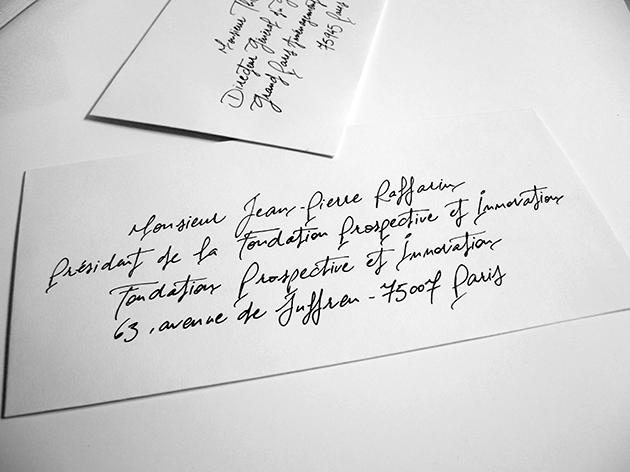 Monsieur
Directeur Général
Grand Paris
75945 Paris
Monsieur Jean-Pierre Raffarin
Président de la Fondation Prospective et Innovation
Fondation Prospective et Innovation
63, avenue de Suffren - 75007 Paris